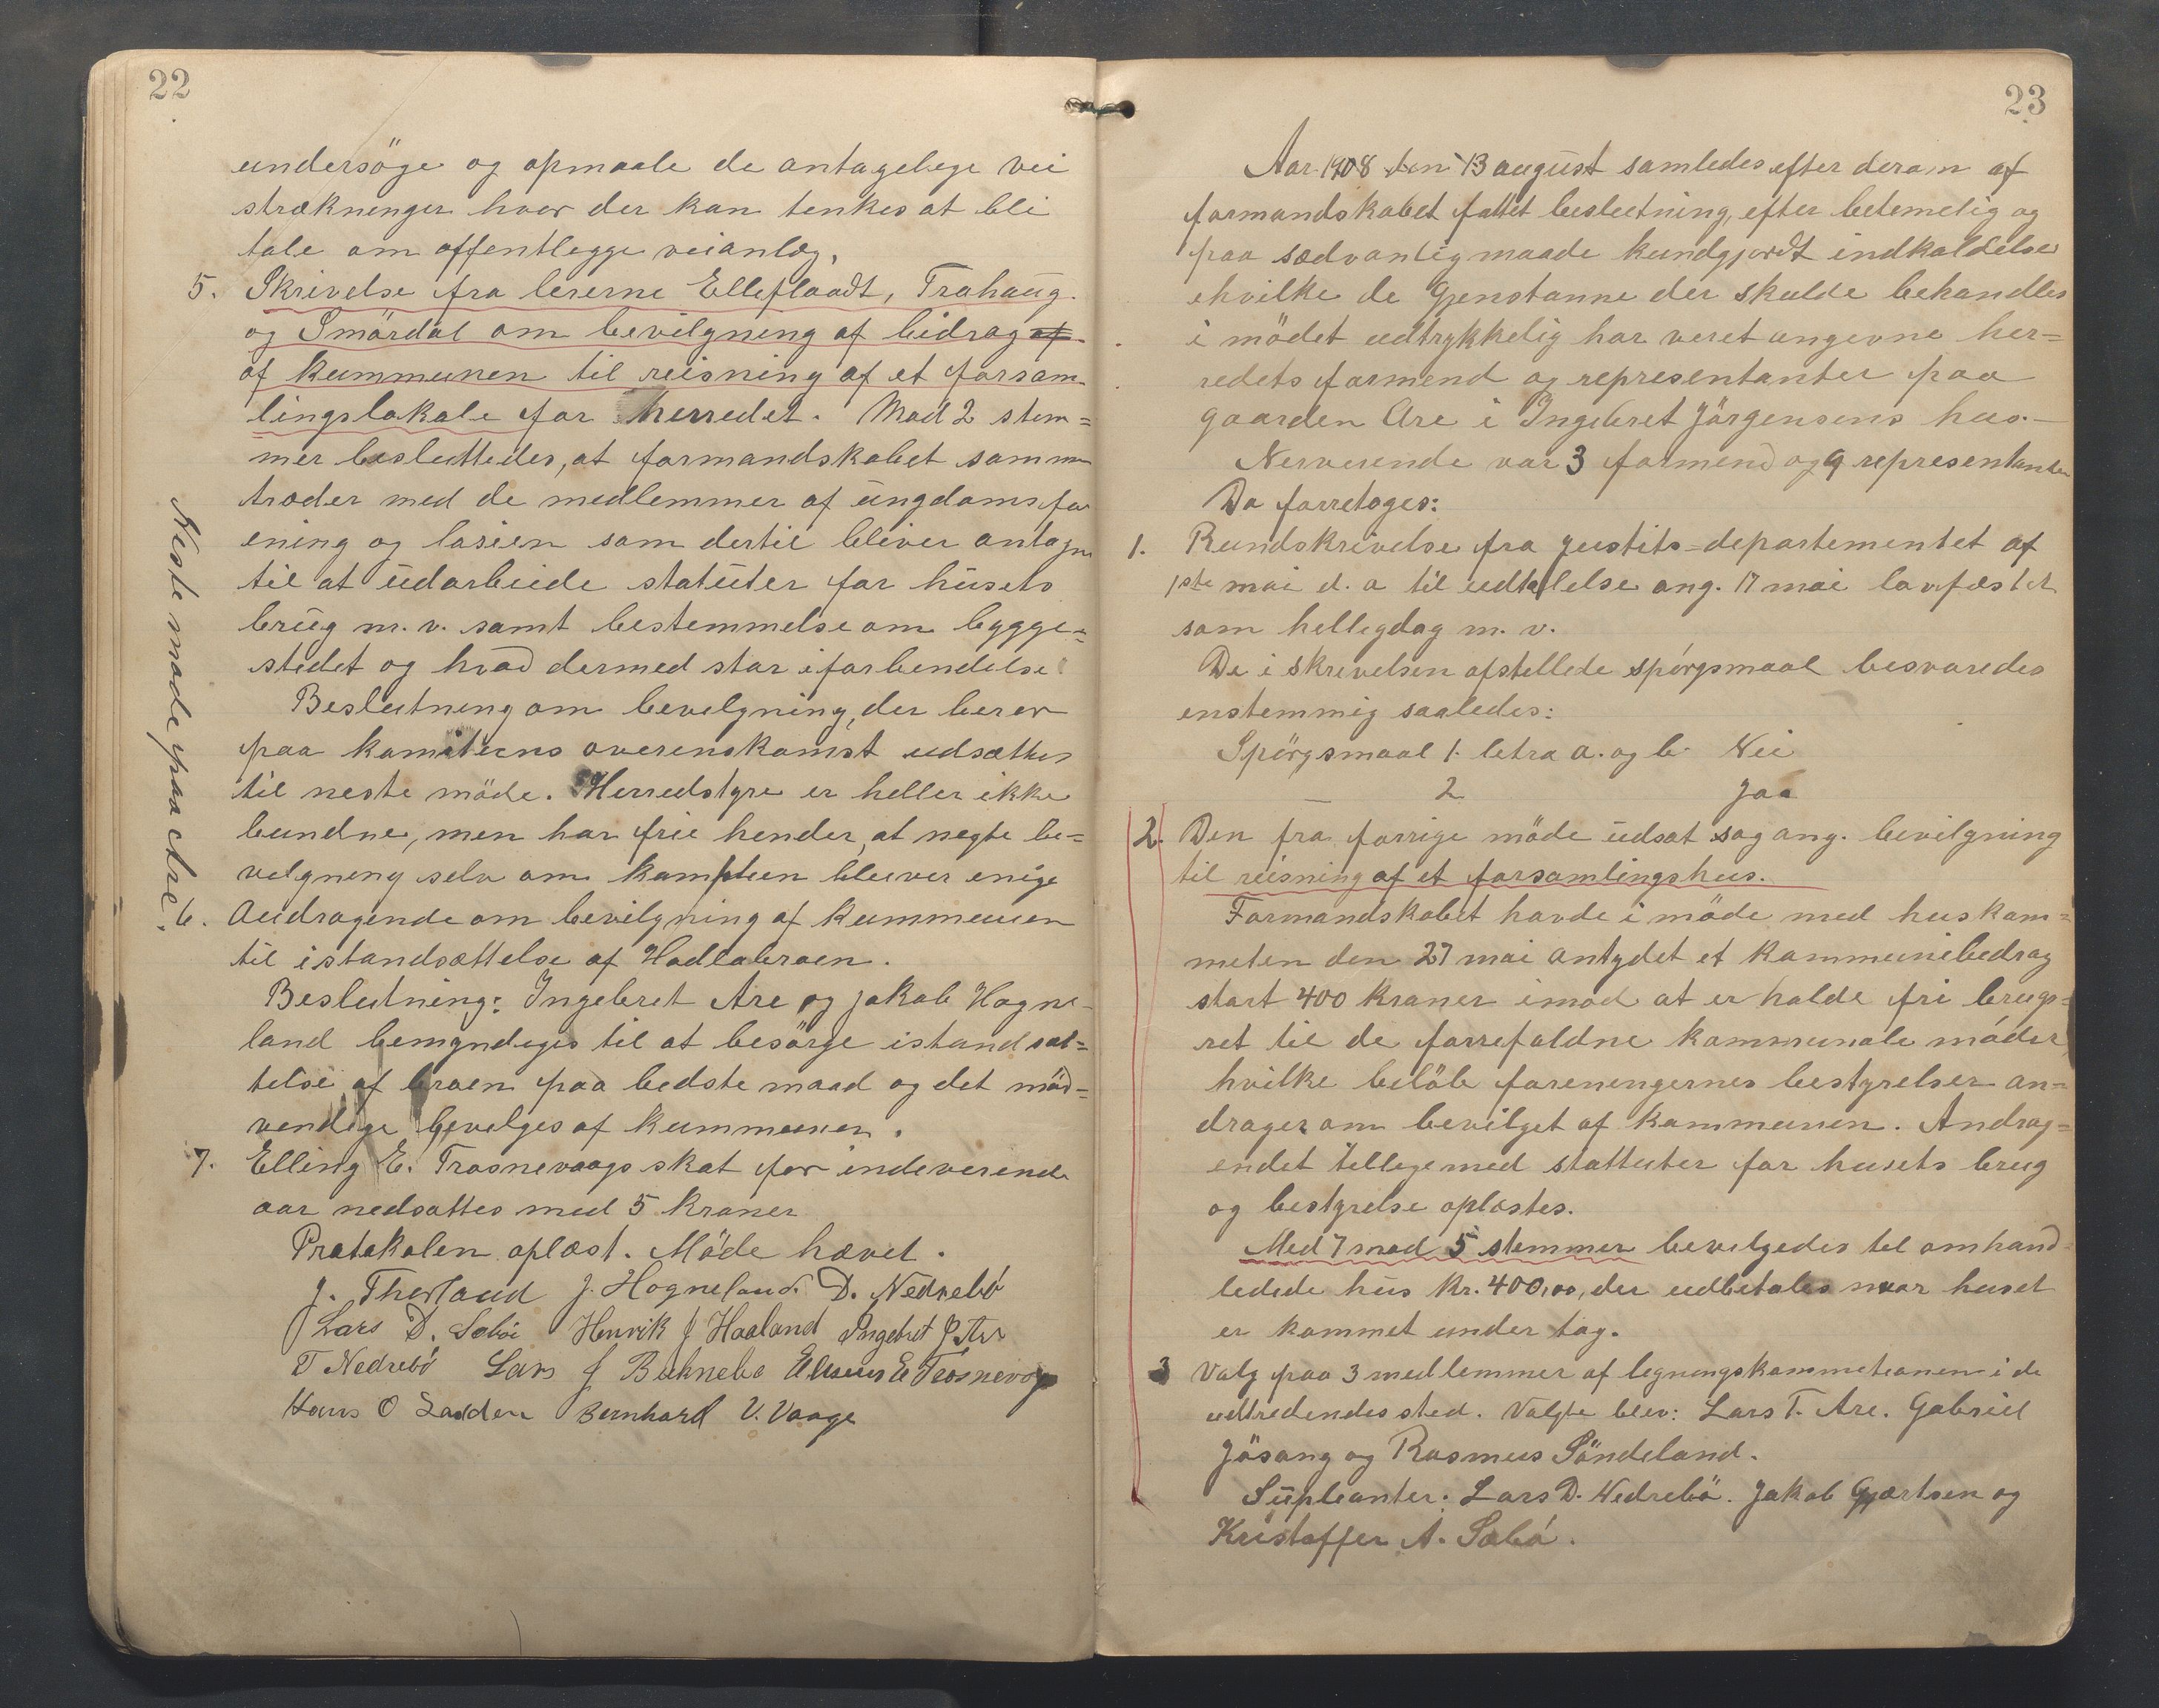 22
undersöge og opmaale de antagelege vei
strækninger hvor der kan tenkes at bli
tale om offentlegge veianlæg.
5. Skrivelse fra lererne Elleflaadt, Trahaug
og Smördal om bevilgning af bidrag af
af kummunen til reisning af et forsam-
lingslokale for herredet. Mod 2 stem=
mer besluttedes, at formandskabet samm
træder med de medlemmer af ungdomsfor
ening og losien som dertil bliver antagn
til at udarbeide statuter for husets
brug m. v. samt bestemmelse om bygge=
stedet og hvad dermed star i forbendelse
Beslutning om bevelgning, der berer
paa komiteens overenskomst udsættes
til neste möde. Herredstyre er heller ikke
bundne, men har frie hender, at negte be=
velgneng selv om komiteen bleever enige
6. Andragende om bevilgning af kummunen
til istandsættelse af Hodlabroen.
Beslutning: Ingebret Are og Jakob Hogne-
land bemyndeges til at besörge istandsæt=
telse af broen paa bedste maad og det nöd=
vendige bevelges af kummunen.
7. Elling E. Trosnevaags skat for indeverende
aar nedsattes med 5 kroner
Protokolen oplæst. Möde hævet.
J. Thorland J. Hogneland. D. Nedrebö
Lars D. Sæböe Henrik J Haaland Ingebret J. Are
T Nedrebö Lars J Boknebe Elling E Trosnevåg
Hans O Lodden Bernhard V. Vaage
Neste möde paa Are.
23
Aar 1908 den 13 august samledes efter derom af
formandskabet fattet beslutning, efter betemelig og
paa sædvanlig maade kundgjordt indkaldelse
i hvilke de Gjenstanne der skulde behandles
i mödet udtrykkelig har veret angevne her=
redets formend og representanter paa
gaarden Are i Ingebret Jörgensens hus.—
Nerverende var 3 formend og 9 representanter
Da forretoges:
1. Rundskrivelse fra Justits-departementet af
1ste mai d. a til udtalelse ang. 17 mai lovfæstet
som helligdag m. v.
De i skrevelsen opstellede spörgsmaal besvaredes
enstemmig saaledes:
Spörgsmaal 1. letra a. og b. Nei
2 Jaa
2. Den fra forrige möde udsat sag ang. bevilgning
til reisning af et forsamlingshus.
Formandskabet havde i möde med huskom=
meten den 27 mai antydet et kommunebedrag
stort 400 kroner imod at er holde fri brugs=
ret til de forrefaldne kommunale möder,
hvilke belöb forenengernes bestyrelser an=
drager om bevilget af kommunen. Andrag=
endet tillegemed stattuter for husets brug
og bestyrelse oplæstes.
Med 7 mod 5 stemmer bevelgedes tel omhand=
lede hus Kr. 400,00, der udbetales naar huset
er kommet under tag.
3 Valg paa 3 medlemmer af legningskommetionen i de
udtredendes sted. Valgte blev: Lars T. Are. Gabriel
Jösang og Rasmus Söndeland.
Supleanter. Lars D. Nedrebö. Jakob Gjærtsen og
Kristoffer A. Sæbö.